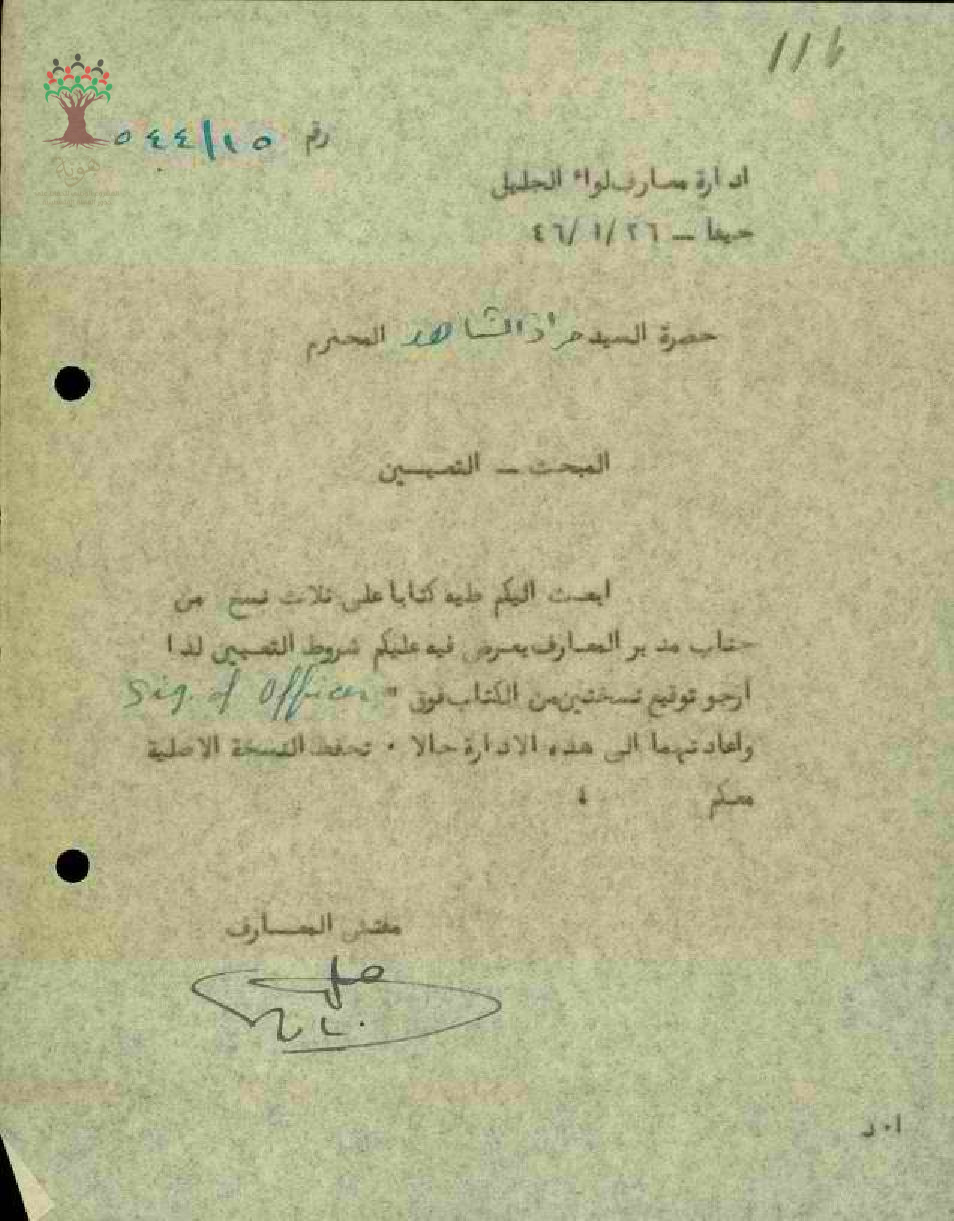 116
رقم ٥٤٤/١٥
هوية
ادارة معارف لواء الجليل
حيفا – ٢٦/١/٤٦
حضرة السيد الشاهد المحترم
المبحث – التعييـــن
ابعث اليكم طيه كتابا على ثلاث نسخ من
جناب مدير المعارف يعرض فيه عليكم شروط التعيين لذا
ارجو توقيع نسختين من الكتاب فوق " Sig. of Officer
واعادتهما الى هذه الادارة حالا ٠ تحفظ النسخة الاصلية
معكم ،
مفتش المعـــارف
ا٠د